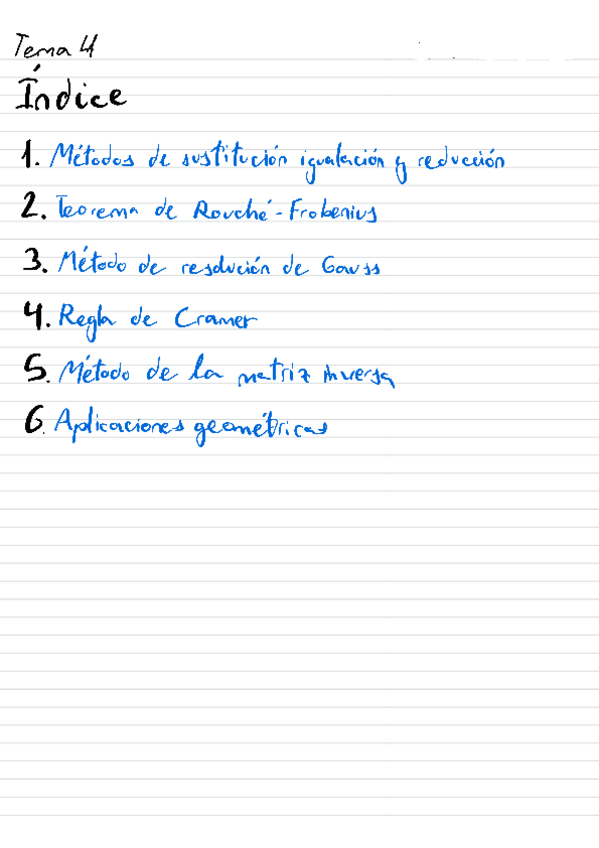 Tema 4
Índice
1. Métodos de sustitución igualación y reducción
2. Teorema de Rouché-Frobenius
3. Método de resolución de Gauss
4. Regla de Cramer
5. Método de la matriz inversa
6. Aplicaciones geométricas